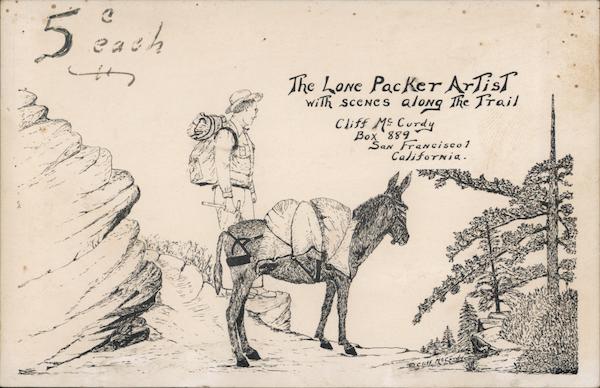 5c each
The Lone Packer Artist
with scenes along The Trail
Cliff Mc Curdy
Box 889
San Francisco 1
California.